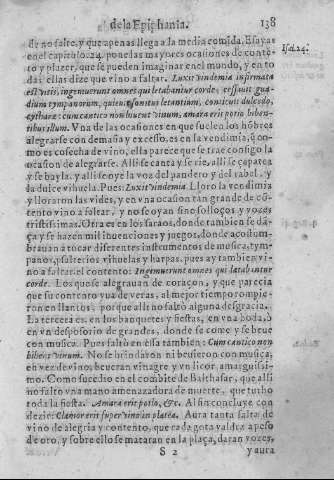 de la Epiphania. 138
de no falte, y que apenas llega a la media comida. Esayas Isai. 24.
en el capitulo. 24. pone las mayores ocasiones de conte-
to y plazer, que se pueden imaginar en el mundo, y en to
das ellas dize que vino a faltar. Luxit vindemia infirmata
est vitis, ingemuerunt omnes qui letabantur corde: cessauit gau-
dium tympanorum, quieuit sonitus letantium, conticuit dulcedo,
cytharæ: cum cantico non bibent vinum, amara erit potio biben-
tibus illam. Vna de las ocasiones en que suelen los hõbres
alegrarse con demasia y excesso, es en la vendimia, q̃ co-
mo es cosecha de vino, ella parece que se trae consigo la
ocasion de alegrarse. Alli se canta y se rie, alli se çapatea
y se bayla, y alli se oye la voz del pandero y del rabel, y
la dulce vihuela. Pues: Luxit vindemia. Lloro la vendimia
y lloraran las vides, y en vna ocasion tan grande de cõ-
tento vino a faltar, y no se oyan sino solloços y vozes
tristissimas. Otra es en los saraos, donde tambien se dã-
ça y se hazen mil inuenciones y juegos, donde acostum-
brauan a tocar diferentes instrumentos de musica, tym-
panos, psalterios vihuelas y harpas: pues ay tambien vi-
no a faltar el contento: Ingemuerunt omnes qui letabantur
corde. Los que se alegrauan de coraçon, y que parecia
que su contento yua de veras, al mejor tiempo rompie-
ron en llantos, porque alli no faltò alguna desgracia.
La tercera es, en los banquetes y fiestas, en vna boda, ò
en vn desposorio de grandes, donde se come y se beue
con musica. Pues faltò en essa tambien: Cum cantico non
bibent vinum. No se brindaron ni beuieron con musica,
en vez de vino, beueran vinagre y vn licor amarguissi-
mo. Como sucedio en el combite de Balthasar, que alli
no falto vna mano amenazadora de muerte, que turbo
toda la fiesta. Amara erit potio, &c. Al fin concluye con
dezir: Clamor erit super vino in platea. Aura tanta falta de
vino de alegria y contento, que cada gota valdra a peso
de oro, y sobre ello se mataran en la plaça, daran vozes,
S 2 y aura